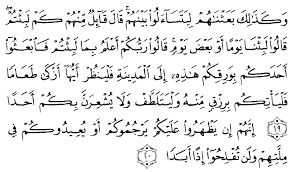 وَكَذَٰلِكَ بَعَثْنَٰهُمْ لِيَتَسَآءَلُوا۟ بَيْنَهُمْ ۚ قَالَ قَآئِلٌ مِّنْهُمْ كَمْ لَبِثْتُمْ ۖ
قَالُوا۟ لَبِثْنَا يَوْمًا أَوْ بَعْضَ يَوْمٍ ۚ قَالُوا۟ رَبُّكُمْ أَعْلَمُ بِمَا لَبِثْتُمْ فَٱبْعَثُوٓا۟
أَحَدَكُم بِوَرِقِكُمْ هَٰذِهِۦٓ إِلَى ٱلْمَدِينَةِ فَلْيَنظُرْ أَيُّهَآ أَزْكَىٰ طَعَامًا
فَلْيَأْتِكُم بِرِزْقٍ مِّنْهُ وَلْيَتَلَطَّفْ وَلَا يُشْعِرَنَّ بِكُمْ أَحَدًا
١٩ إِنَّهُمْ إِن يَظْهَرُوا۟ عَلَيْكُمْ يَرْجُمُوكُمْ أَوْ يُعِيدُوكُمْ فِى
مِلَّتِهِمْ وَلَن تُفْلِحُوٓا۟ إِذًا أَبَدًا ٢٠